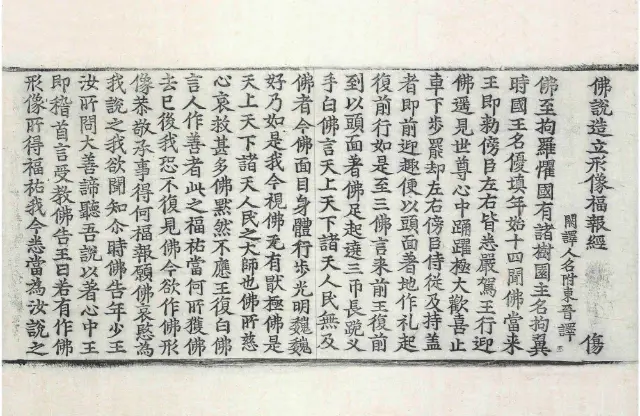 佛說造立形像福報經 傷
闕譯人名附東晉譯
佛至拘羅懼國有諸樹園主名拘翼
時國王名優填年始十四聞佛當来
王即勑傍臣左右皆悉嚴駕王行迎
佛遥見世尊心中踊躍極大歡喜止
車下步罷却左右傍臣侍従及持盖
者即前迎趣便以頭面著地作礼起
復前行如是至三佛言来前王復前
到以頭面著佛足起遶三帀長跪叉
手白佛言天上天下諸天人民無及
佛者今佛面目身體行步光明巍巍
好乃如是我今視佛无有猒極佛是
天上天下諸天人民之大師也佛所慈
心哀救甚多佛黙然不應王復白佛
言人作善者此之福祐當何所獲佛
去已後我恐不復見佛今欲作佛形
像恭敬承事得何福報願佛哀愍為
我說之我欲聞知尒時佛告年少王
汝所問大善諦聽吾說以著心中王
即稽首言受教佛告王曰若有作佛
形像所得福祐我今悉當為汝說之